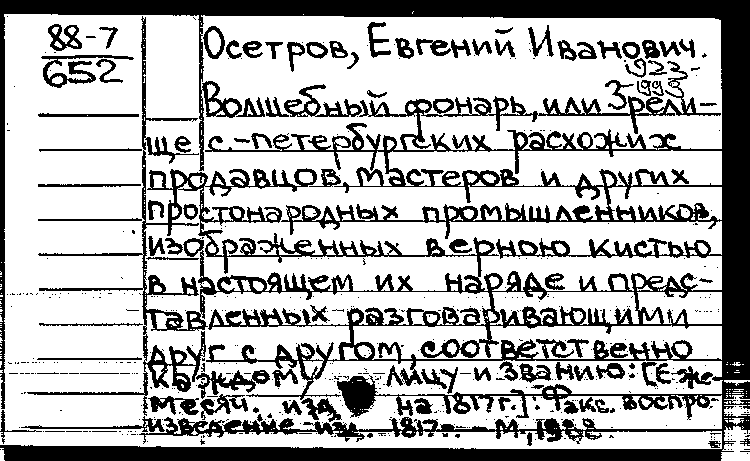 88-7
652
Осетров, Евгений Иванович.
1923-
1993
Волшебный фонарь, или Зрели-
ще с.-петербургских расхожих
продавцов, мастеров и других
простонародных промышленников,
изображенных верною кистью
в настоящем их наряде и предс-
тавленных разговаривающими
друг с другом, соответственно
каждому лицу и званию: [Еже-
месяч. изд. на 1817г.]: Факс. воспро-
изведение изд. 1817г. - М., 1988.